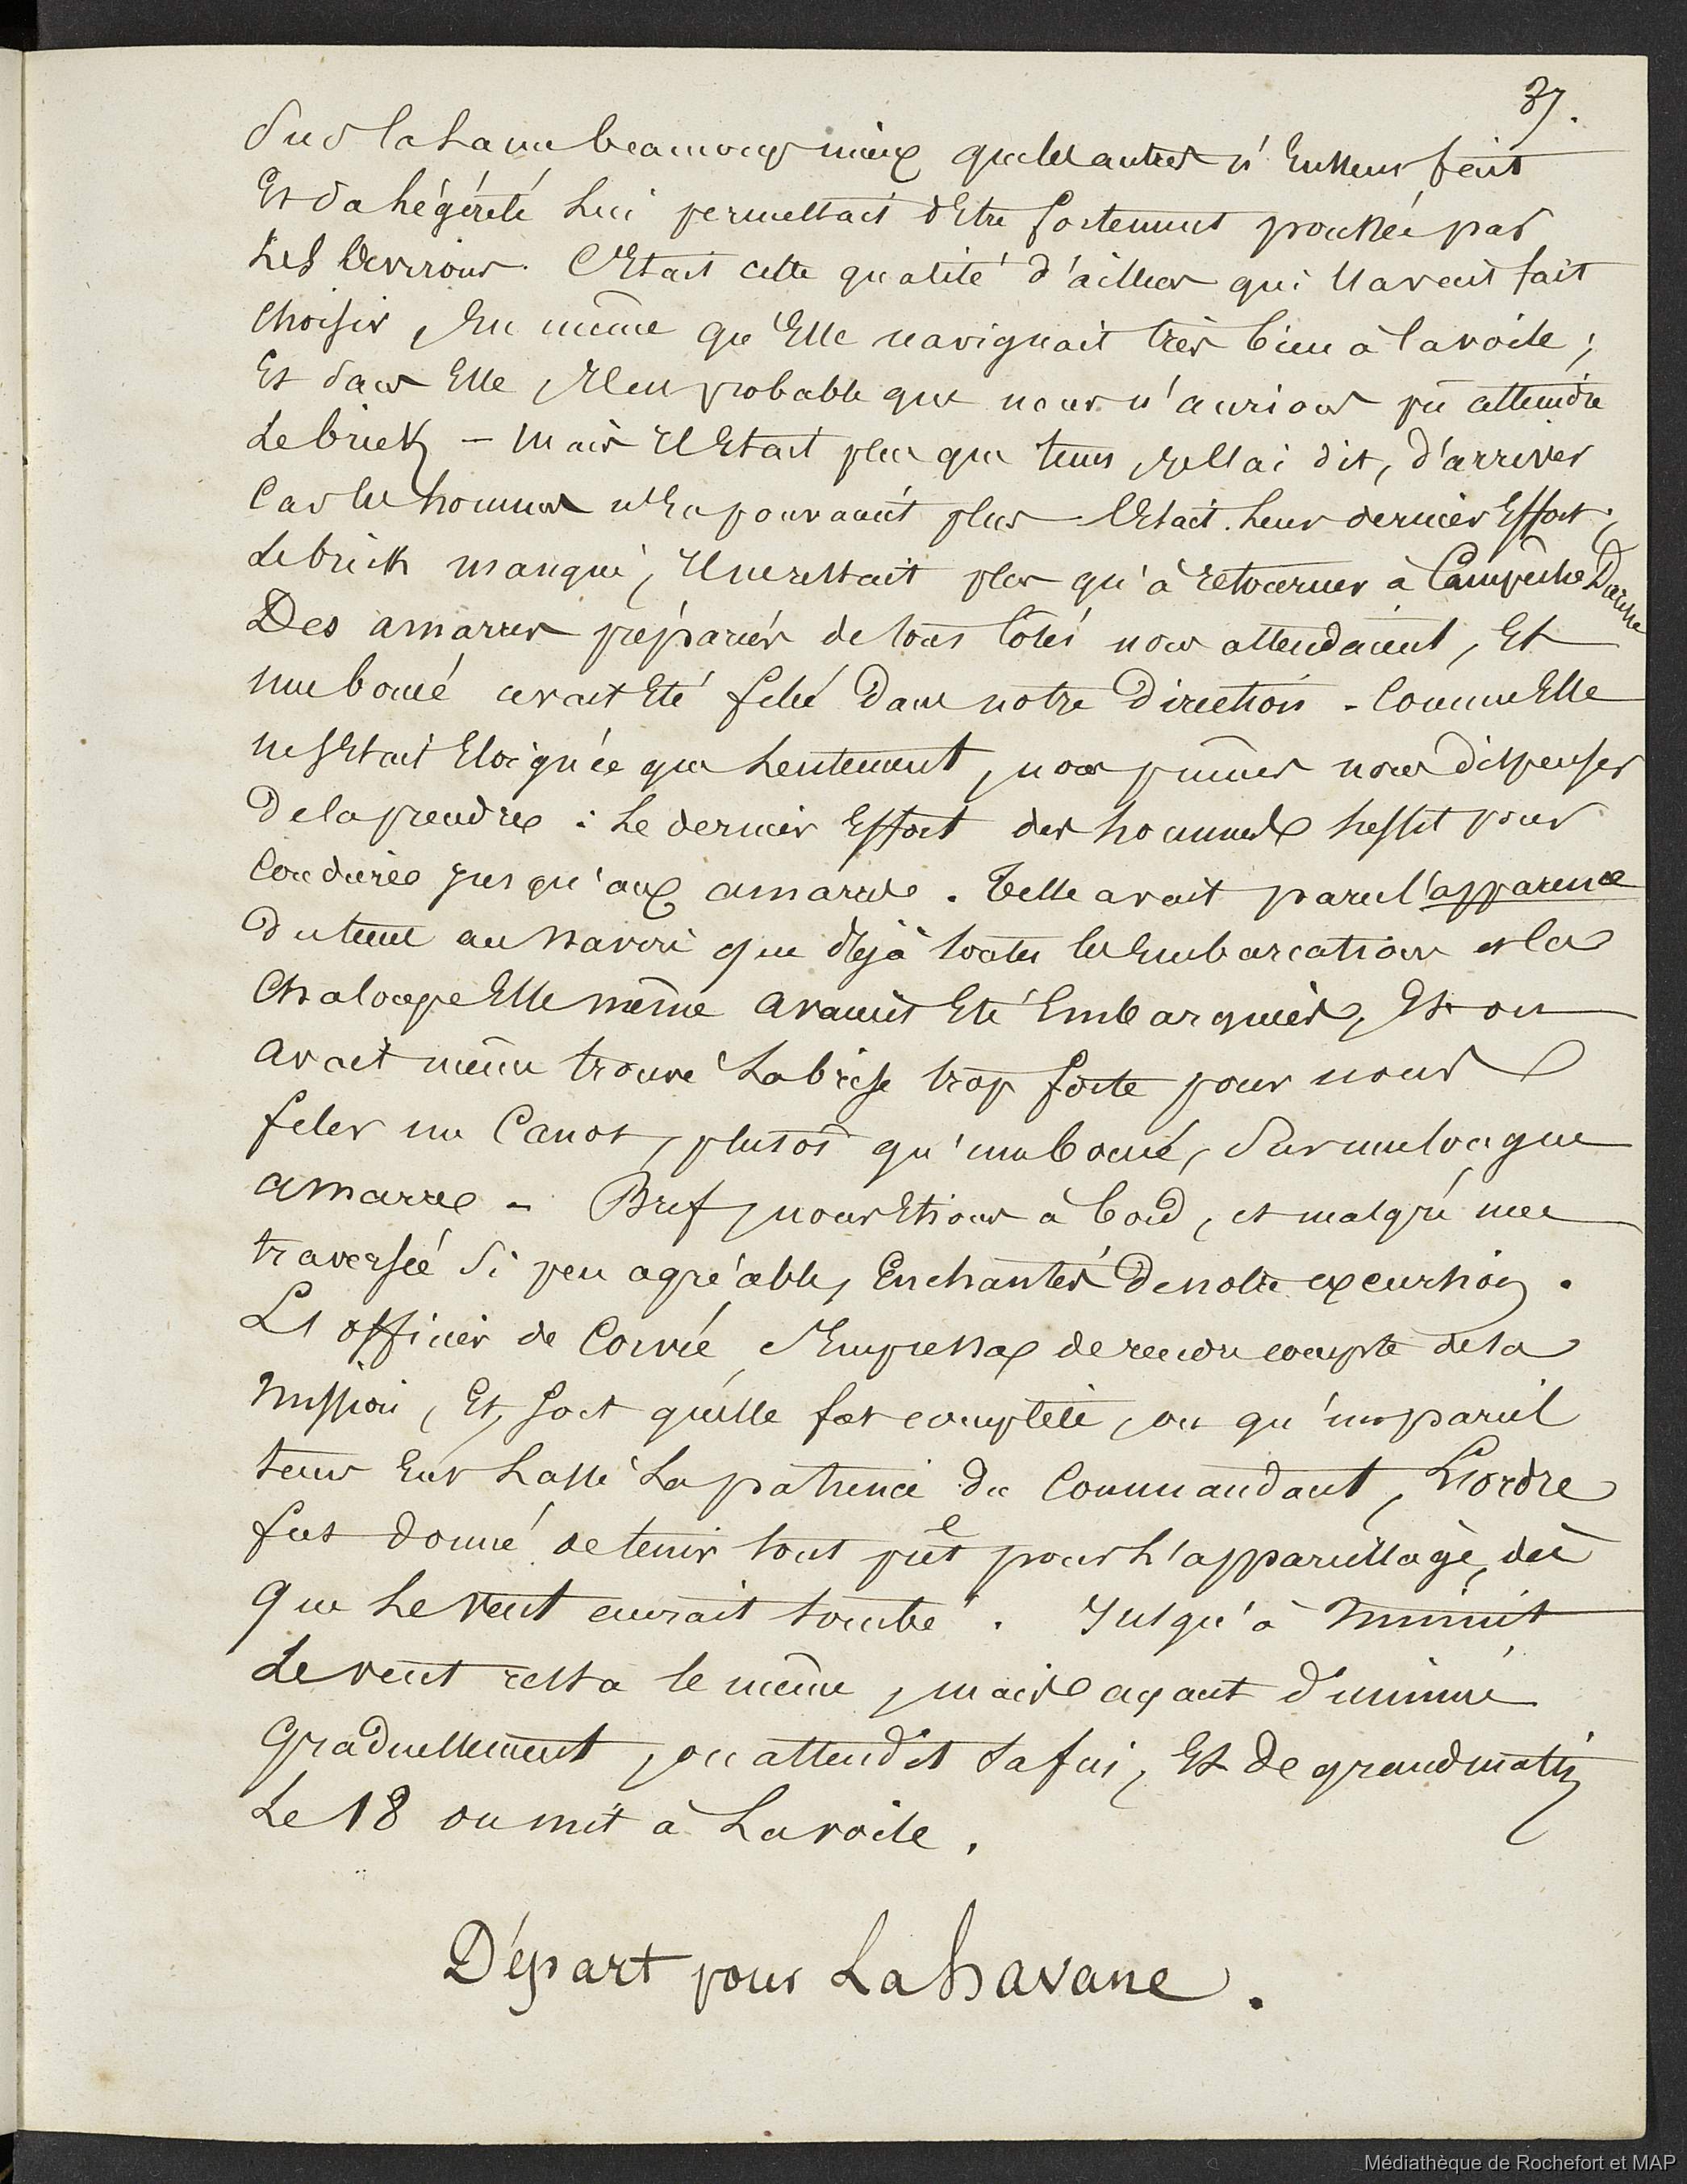 37.
Sur la Lame beaucoup mieux que les autres n'Eussent fait
Et sa Légéreté Lui permettait d'Etre fortement poussée par
Les Avirons. C'Etait cette qualité d'ailleurs qui l'avait fait
Choisir, En même qu'Elle navignait très bien à la voile;
Et sans Elle, Il est probable que nous n'aurions pu attendre
Le brick – Mais Il Etait plus que tems, je l'ai dit, d'arriver
Car les hommes n'En pouvaient plus – C'Etait Leur dernier Effort;
Le brick manqué, Il ne restait plus qu'à retourner à Campêche
Des amarres préparées de tous Côtés nous attendaient, Et
une bouée avait Eté filée Dans notre Direction – Comme Elle
ne s'Etait Eloignée que Lentement, nous pûmes nous dispenser
De la prendre : Le dernier Effort des hommes Se fit pour
Conduire jusqu'aux amarres. Telle avait paru l'apparence
Du tems au Navire que déjà toutes les Embarcations et la
Chaloupe Elle même avaient Eté Embarquées, Et on
avait même trouvé La brise trop forte pour nous
filer un Canot, plutôt qu'une bouée, Sur une longue
amarre – Bref, nous Etions à bord, et malgré une
traversée Si peu agréable, Enchantés De notre excursion.
L'officier de Corvée S'Empressa de rendre compte de sa
Mission, Et, Soit qu'elle fût complète, ou qu'un pareil
tems Eut Lassé La patience du Commandant, L'ordre
fut donné de tenir tout prêt pour L'appareillage, dès
Que Le Vent aurait tombé. Jusqu'à Minuit
Le vent resta le même, mais ayant diminué
Graduellement, on attendit Sa fin, Et De grand matin
Le 18 on mit à La voile.
Départ pour La havane.
Médiathèque de Rochefort et MAP